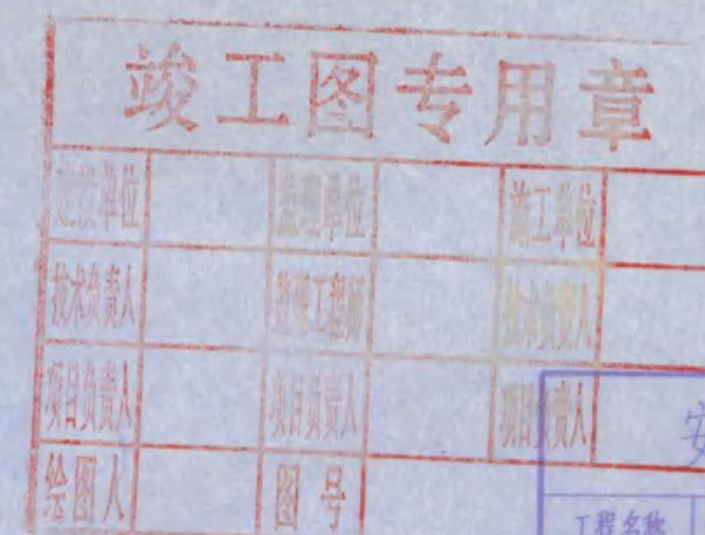 竣工图专用章
建设单位 监理单位 施工单位
技术负责人 监理工程师 技术负责人
项目负责人 项目负责人 项目负责人
绘图人 图号
安
工程名称